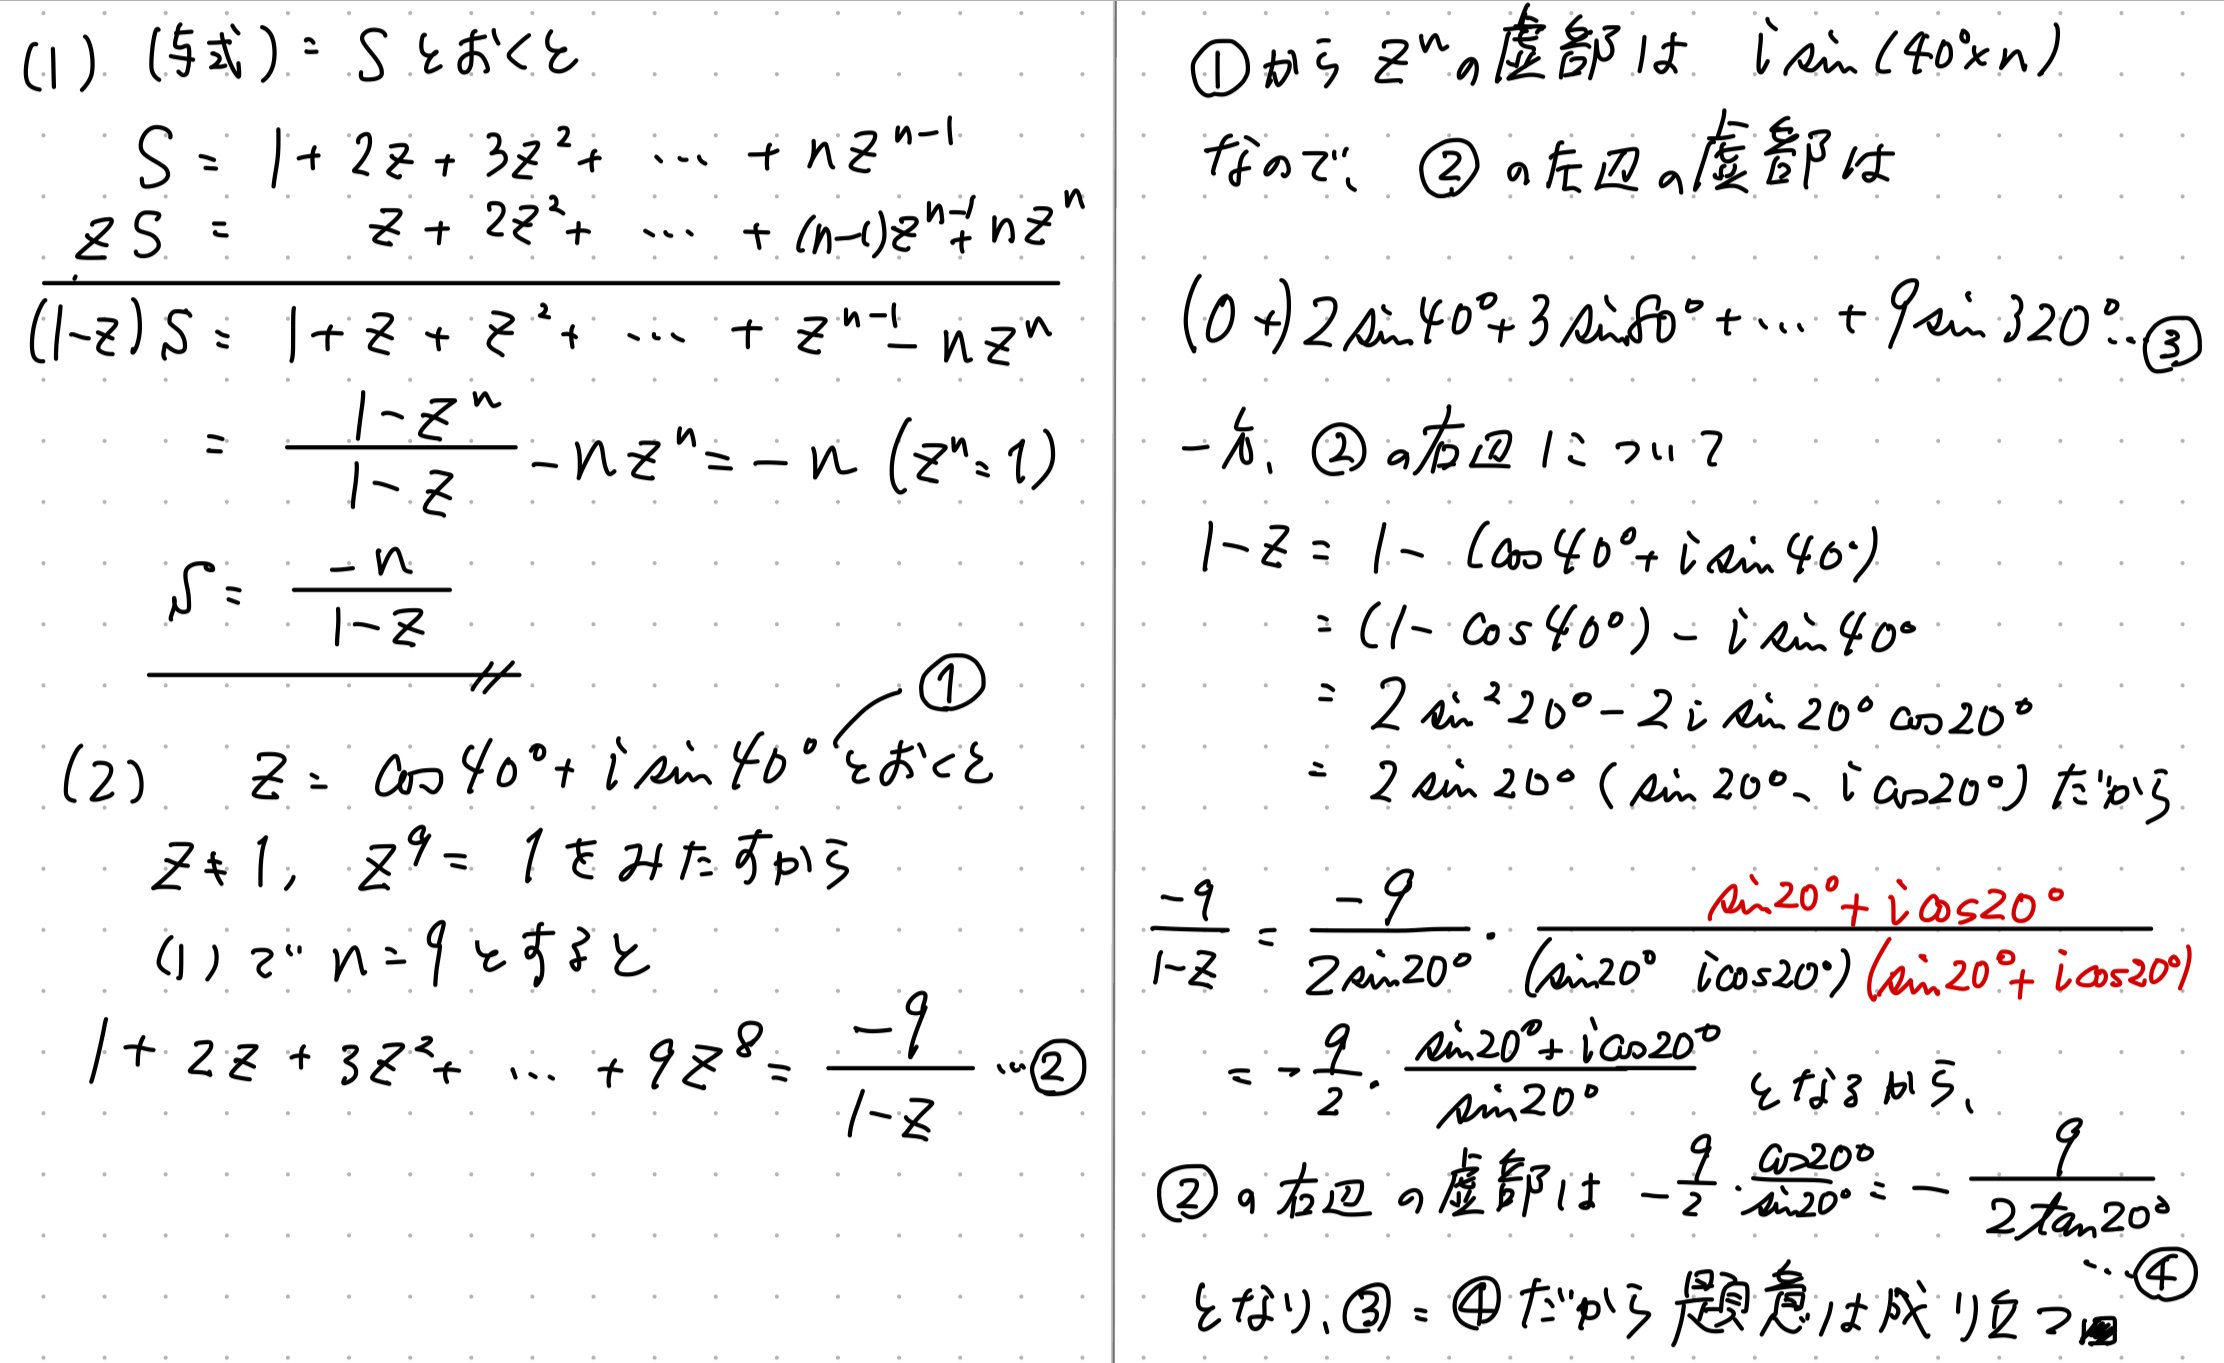 (1) (与式) = S とおくと
S = 1 + 2z + 3z² + … + nz^{n-1}
zS = z + 2z² + … + (n-1)z^{n-1} + nz^n
(1-z)S = 1 + z + z² + … + z^{n-1} - nz^n
= \frac{1-z^n}{1-z} - nz^n = -n (z^n = 1)
S = \frac{-n}{1-z}
①
(2) z = cos40° + i sin40° とおくと
z ≠ 1, z⁹ = 1 をみたすから
(1) で n = 9 とすると
1 + 2z + 3z² + … + 9z⁸ = \frac{-9}{1-z} …②
①から z^n の虚部は i sin(40°×n)
なので、②の左辺の虚部は
(0+) 2sin40° + 3sin80° + … + 9sin320° …③
一方、②の右辺について
1-z = 1 - (cos40° + i sin40°)
= (1 - cos40°) - i sin40°
= 2sin²20° - 2i sin20° cos20°
= 2sin20° (sin20° - i cos20°) だから
\frac{-9}{1-z} = \frac{-9}{2sin20°} · \frac{sin20° + i cos20°}{(sin20° icos20°)(sin20° + i cos20°)}
= -\frac{9}{2} · \frac{sin20° + i cos20°}{sin20°} となるから、
②の右辺の虚部は -\frac{9}{2} · \frac{cos20°}{sin20°} = -\frac{9}{2tan20°}
…④
となり、③=④だから題意は成り立つ